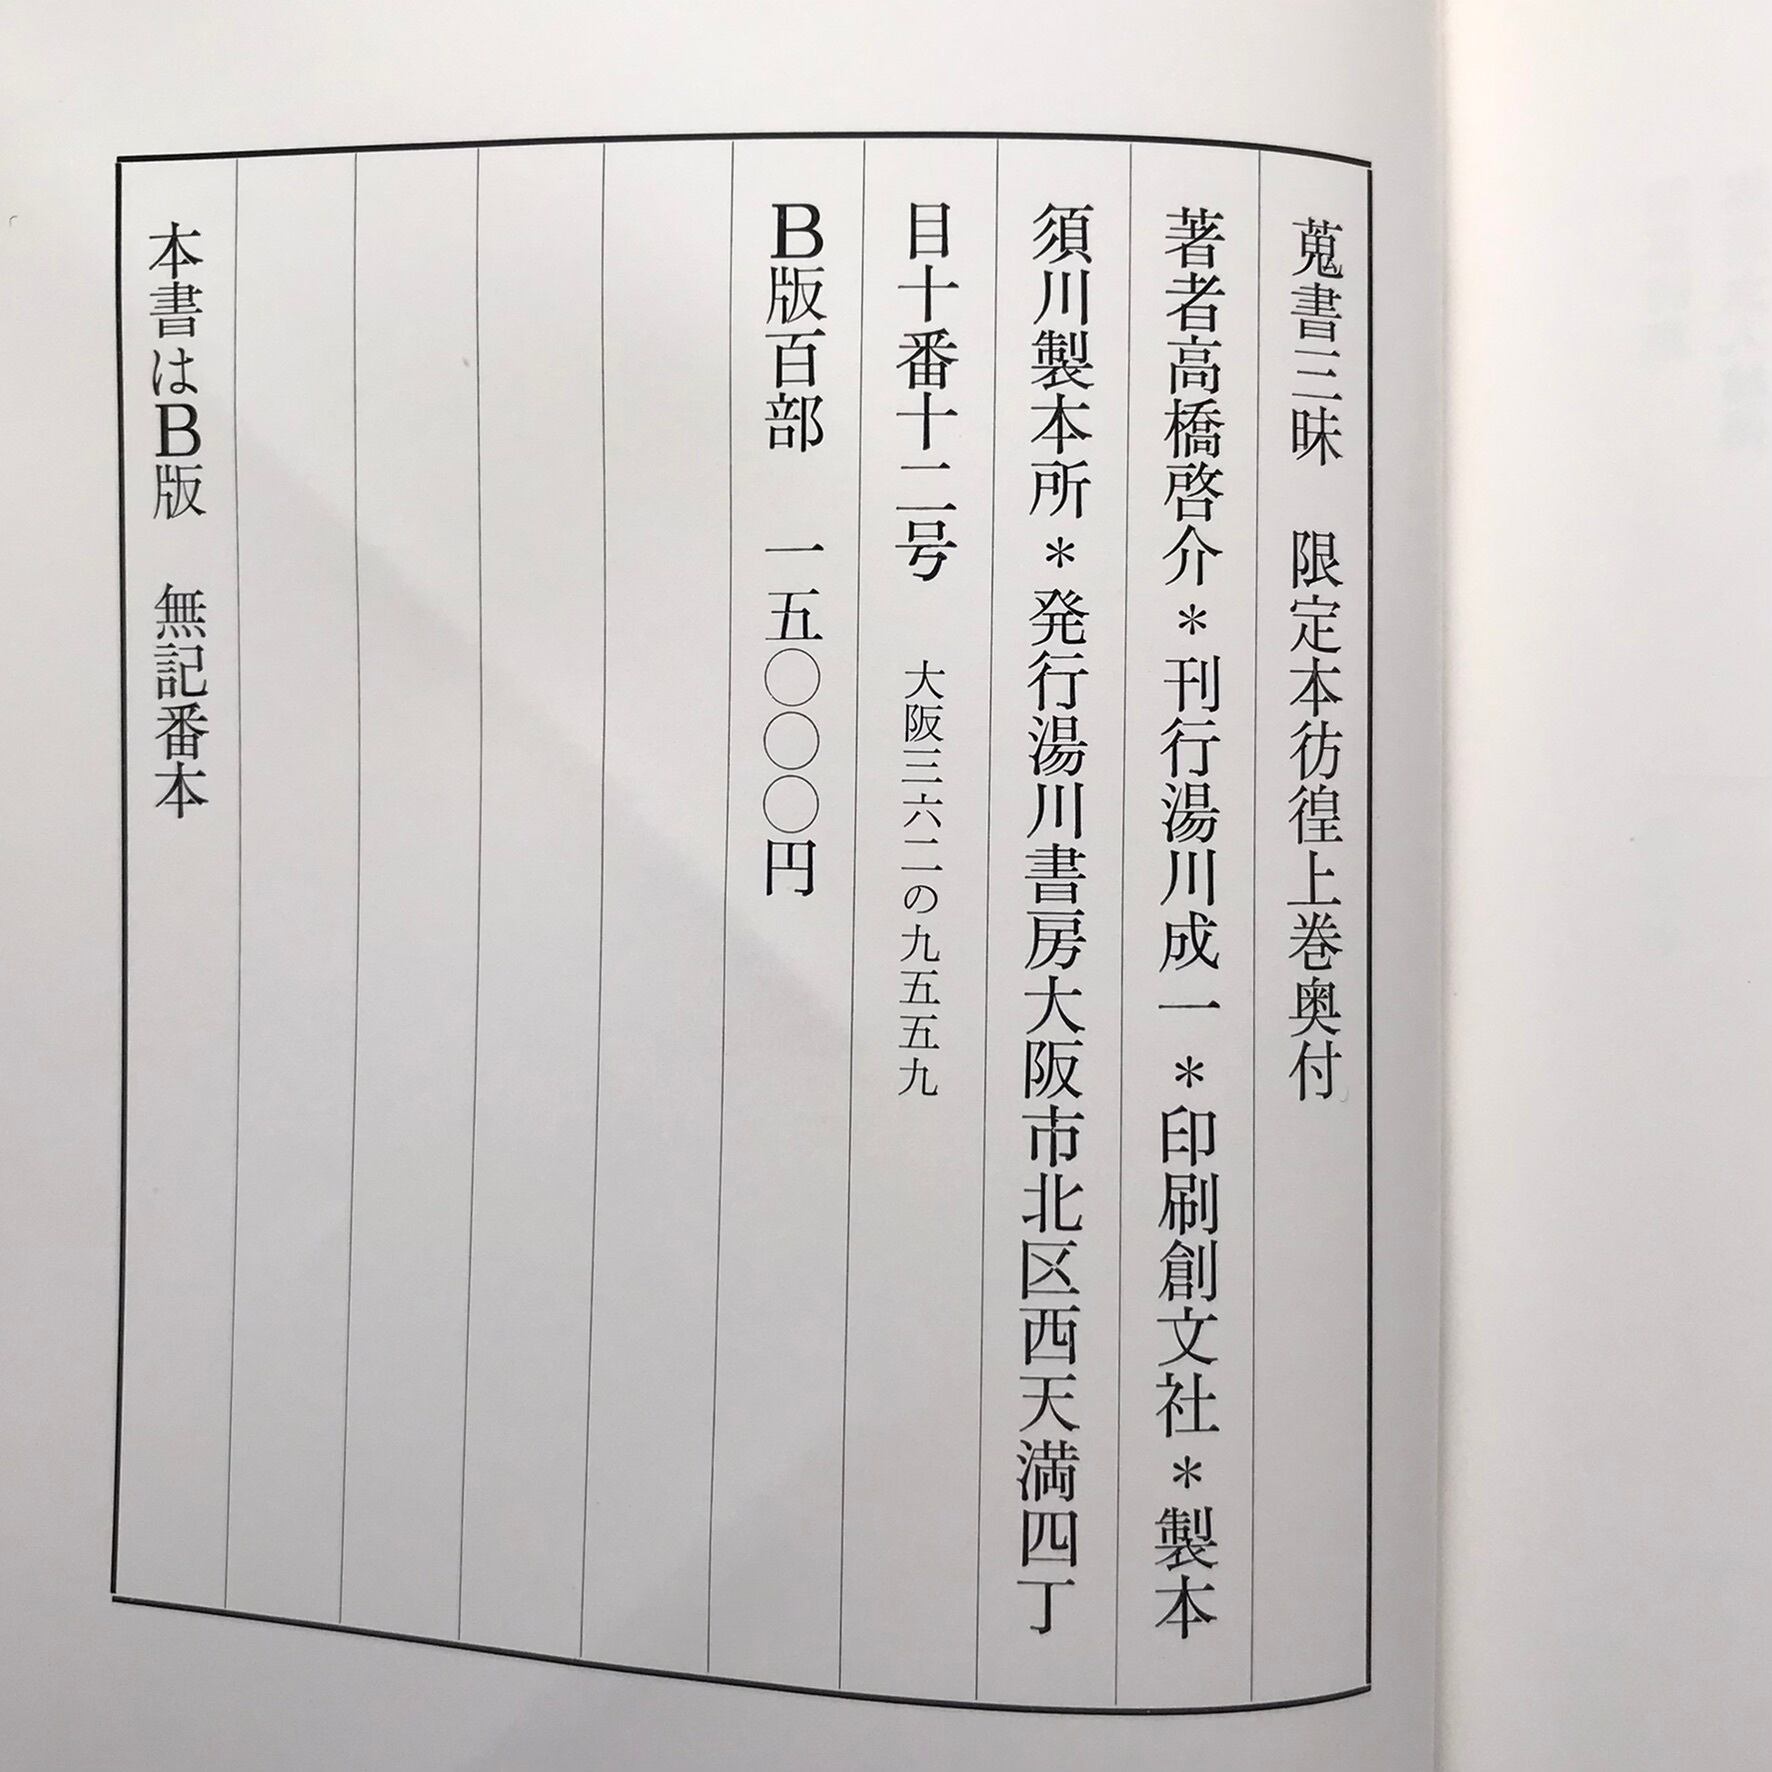 蒐書三昧　限定本彷徨上巻奥付
著者高橋啓介＊刊行湯川成一＊印刷創文社＊製本
須川製本所＊発行湯川書房大阪市北区西天満四丁
目十番十二号　大阪三六二の九五五九
B版百部　一五〇〇〇円
本書はB版　無記番本